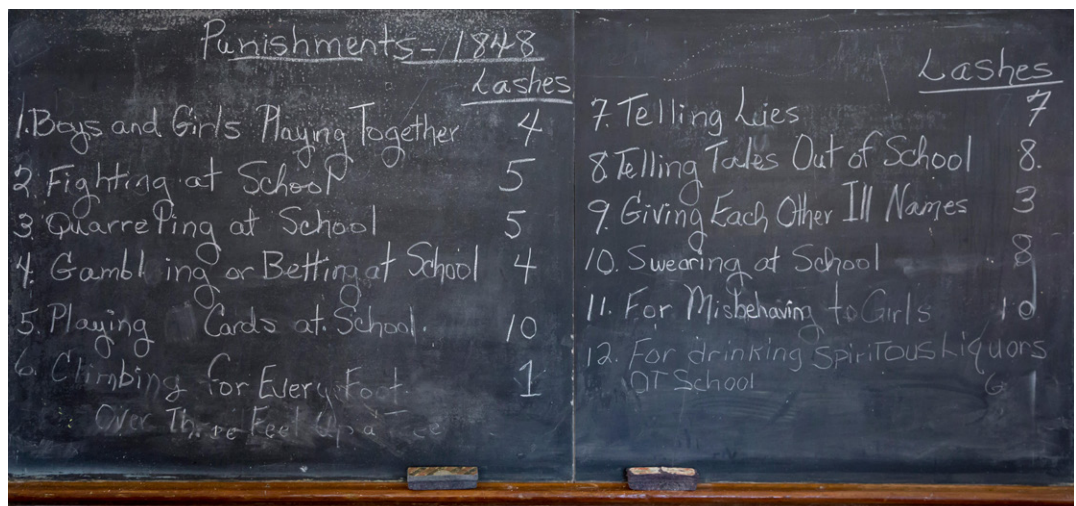 Punishments - 1848
Lashes
1. Boys and Girls Playing Together 4
2. Fighting at School 5
3. Quarreling at School 5
4. Gambling or Betting at School 4
5. Playing Cards at School. 10
6. Climbing for Every Foot 1
Over Three Feet Up a
Lashes
7. Telling Lies 7
8. Telling Tales Out of School 8.
9. Giving Each Other Ill Names 3
10. Swearing at School 8
11. For Misbehaving to Girls 10
12. For drinking SpiriTous Liquors
OT School